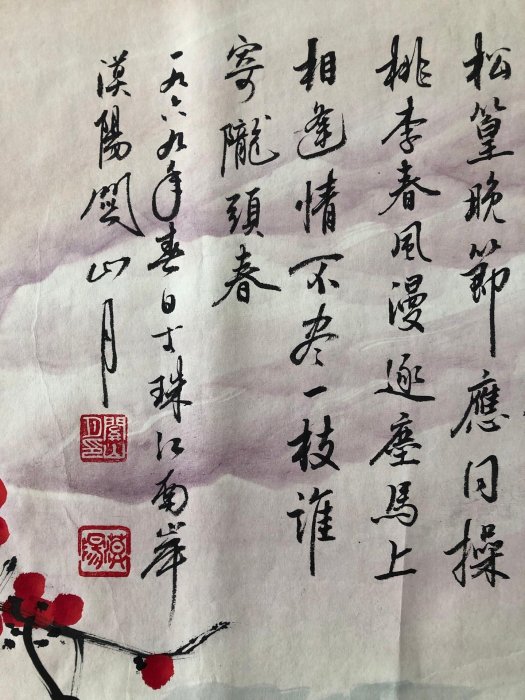 松篁晚節應同操
桃李春風漫逐塵馬上
相逢情不尽一枝誰
寄隴頭春
一九六九年春日于珠江南岸
漠陽關山月
關山月印
漠陽